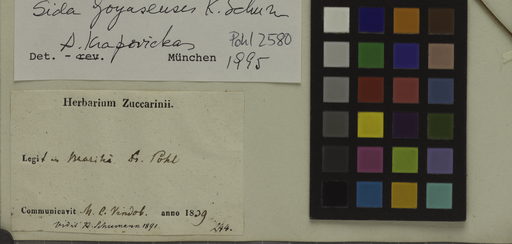 Sida goyasensis K. Schum
A. Krapovickas Pohl 2580
Det. - rev. München 1995
Herbarium Zuccarinii.
Legit in Brasilia Dr. Pohl
Communicavit M. C. Vindob. anno 1839
vidit K. Schumann 1891 244.